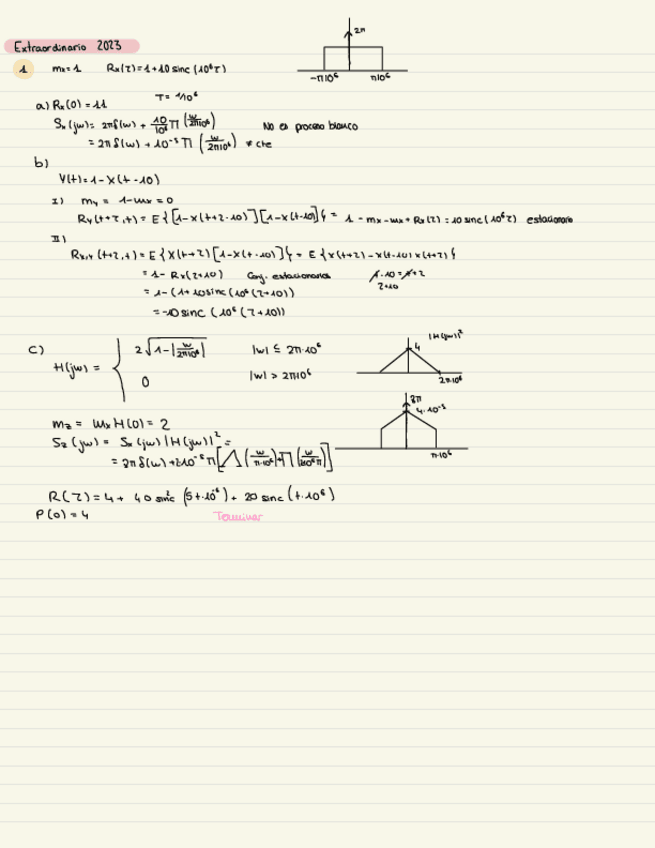 Extraordinario 2023
2π
-π10⁶ π10⁶
1 mx=1 Rx(τ)=1+10 sinc (10⁶τ)
T= 1/10⁶
a) Rx(0)=11
Sx(jω)= 2πδ(ω) + 10/10⁶ Π (ω/2π10⁶) No es proceso blanco
= 2πδ(ω) + 10⁻⁵ Π (ω/2π10⁶) ≠ cte
b)
Y(t)=1-X(t-10)
I) my = 1-mx = 0
Ry(t+τ,t) = E{[1-X(t+τ-10)][1-X(t-10)]} = 1 - mx - mx + Rx(τ) = 10 sinc(10⁶τ) estacionario
II)
Rx,y(t+τ,t) = E{X(t+τ)[1-X(t-10)]} = E{X(t+τ) - X(t-10) X(t+τ)}
= 1 - Rx(τ+10) Conj. estacionarios t-10 = t+τ
τ+10
= 1-(1+10sinc(10⁶(τ+10))
= -10 sinc (10⁶(τ+10))
c) H(jω) = { 2√1-|ω/2π10⁶| |ω| ≤ 2π·10⁶
0 |ω| > 2π10⁶
|H(jω)|²
4
2π·10⁶
8π
4·10⁻⁵
π·10⁶
mz = mx H(0) = 2
Sz(jω) = Sx(jω)|H(jω)|² =
R(τ) = 4 + 40 sinc² (5t·10⁶) + 20 sinc (t·10⁶)
P(0) = 4 Terminar